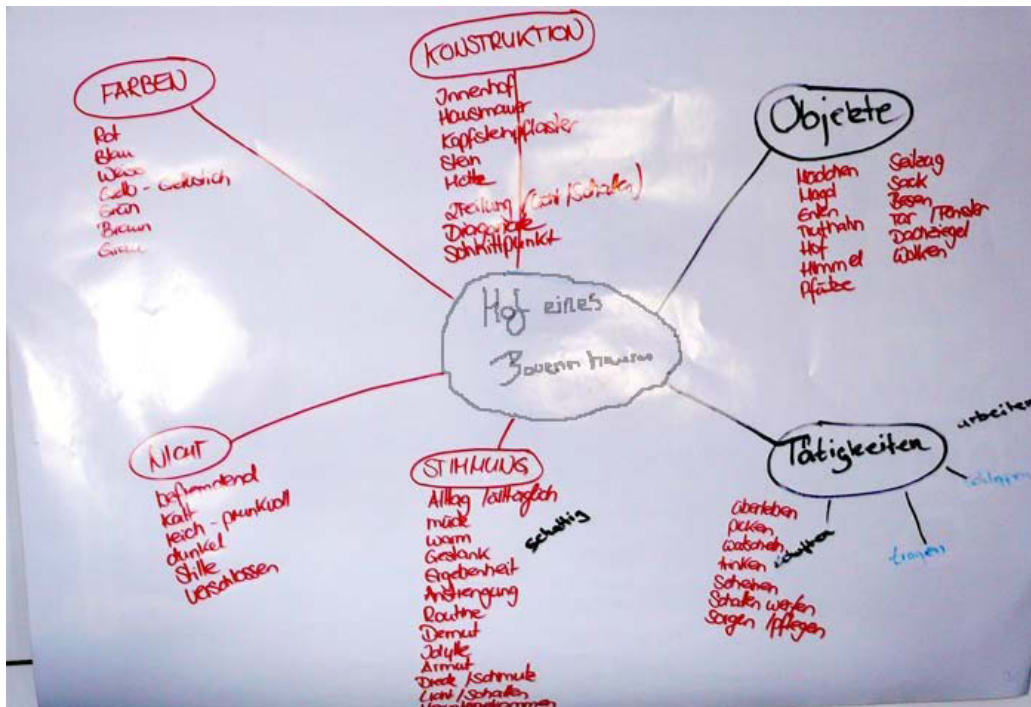 FARBEN
Rot
Blau
Weiss
Gelb - Gelbstich
Grün
Braun
Grau
KONSTRUKTION
Innenhof
Hausmauer
Kopfsteinpflaster
Stein
Mitte
2Teilung (Licht/Schatten)
Diagonale
Schnittpunkt
Objekte
Mädchen
Magd
Enten
Truthahn
Hof
Himmel
Pfütze
Seilzug
Sack
Besen
Tor / Fenster
Dachziegel
Wolken
Hof eines
NICHT
befremdend
kalt
reich - prunkvoll
dunkel
Stille
verschlossen
STIMMUNG
Alltag / alltäglich
müde
warm
Gestank
Ergebenheit
Anstrengung
Routine
Demut
Idylle
Armut
Dreck / Schmutz
Licht / Schatten
schattig
Tätigkeiten
arbeiten
tragen
überleben
picken
watscheln
trinken
Scheinen
Schatten werfen
sorgen / pflegen